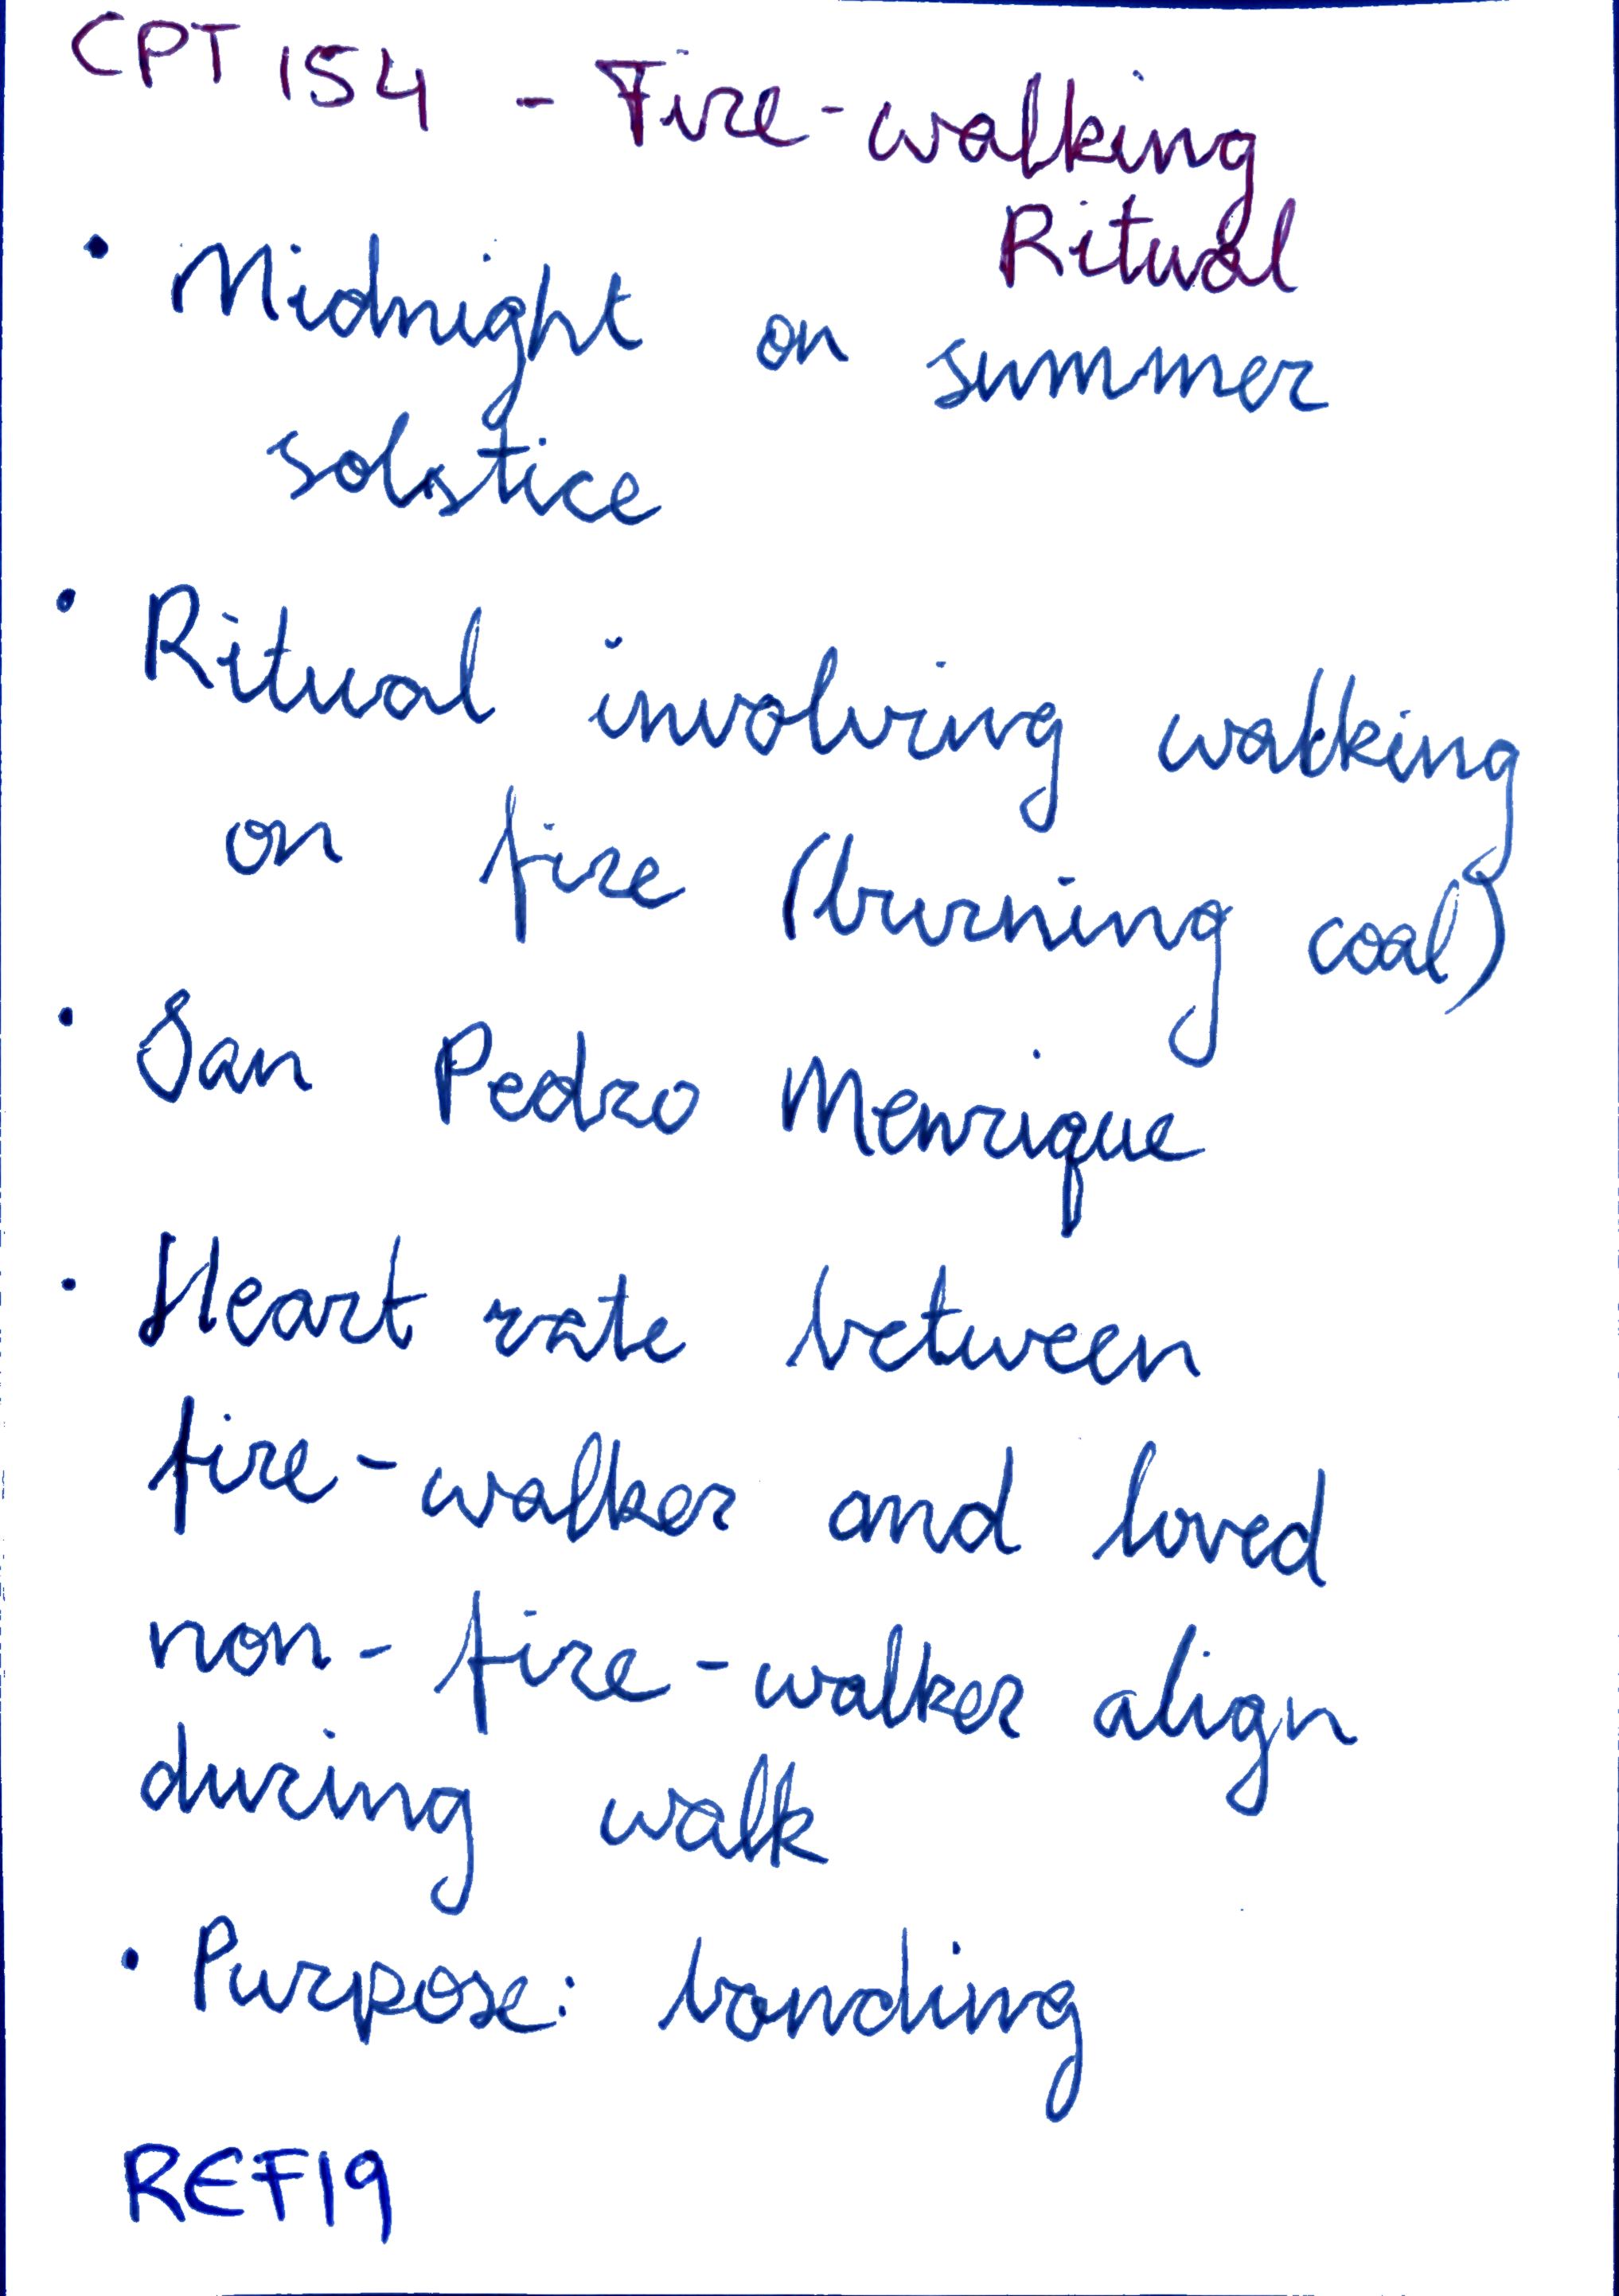 CPT 154 - Fire-walking
Ritual
• Midnight on summer
solstice
• Ritual involving walking
on fire (burning coal)
• San Pedro Menrique
• Heart rate between
fire-walker and loved
non-fire-walker align
during walk
• Purpose: bonding
REF19